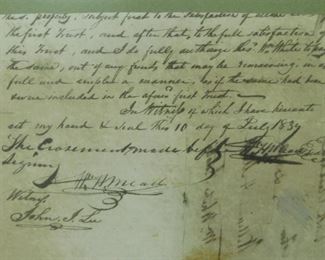 the s. property, subject first to the satisfaction of
the first Trust, and after that, to the full satisfaction of
this Trust, and I do fully authorize Wm White to pay
the same, out of any funds that may be remaining, in as
full and ample a manner, as if the same had been
were included in the afore first trust.
In Witness of which I have hereunto
set my hand & seal this 10 day of July 1839
The Erasement made before
signing
Wm W Mead
Witness
John J. Lee